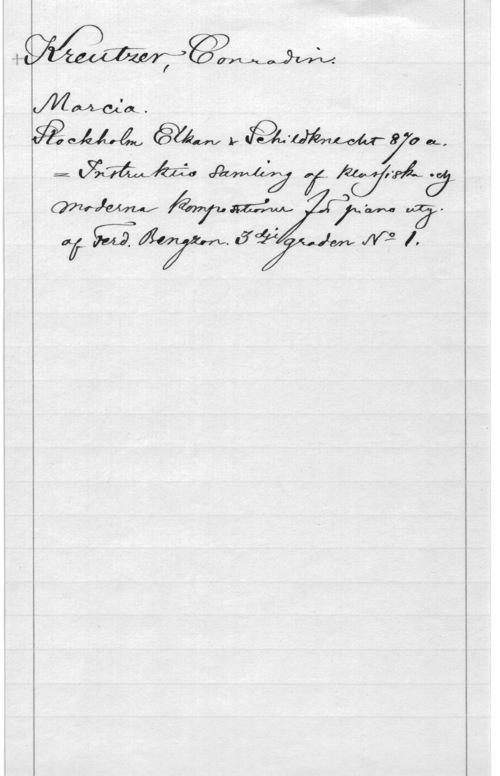 +Kreutzer, Conradin.
Marcia.
Stockholm Elkan & Schildknecht 870 a.
= Instruktiv Samling af klassiska och
moderna kompositioner för piano utg.
af Ferd. Bengzon. 3dje graden No 1.